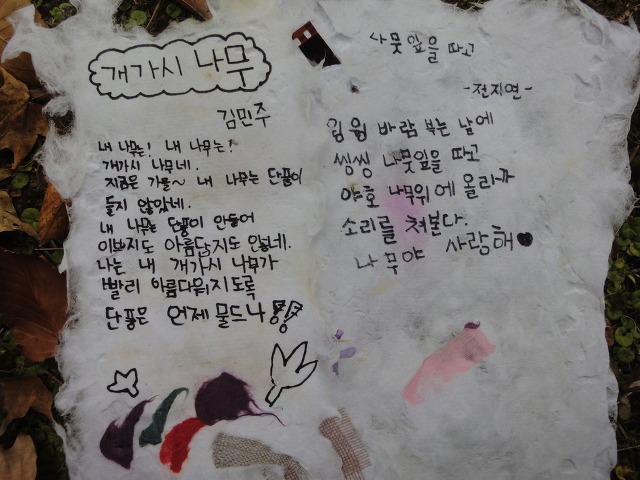 개가시 나무
김민주
내 나무는! 내 나무는!
개가시 나무네.
지금은 가을~ 내 나무는 단풍이
들지 않았네.
내 나무는 단풍이 안들어
이쁘지도 아름답지도 않네.
나는 내 개가시 나무가
빨리 아름다워지도록
단풍은 언제 물드나!!
나뭇잎을 따고
-전지연-
윙윙 바람 부는 날에
씽씽 나뭇잎을 따고
야호 나무위에 올라가
소리를 쳐본다.
나무야 사랑해♥